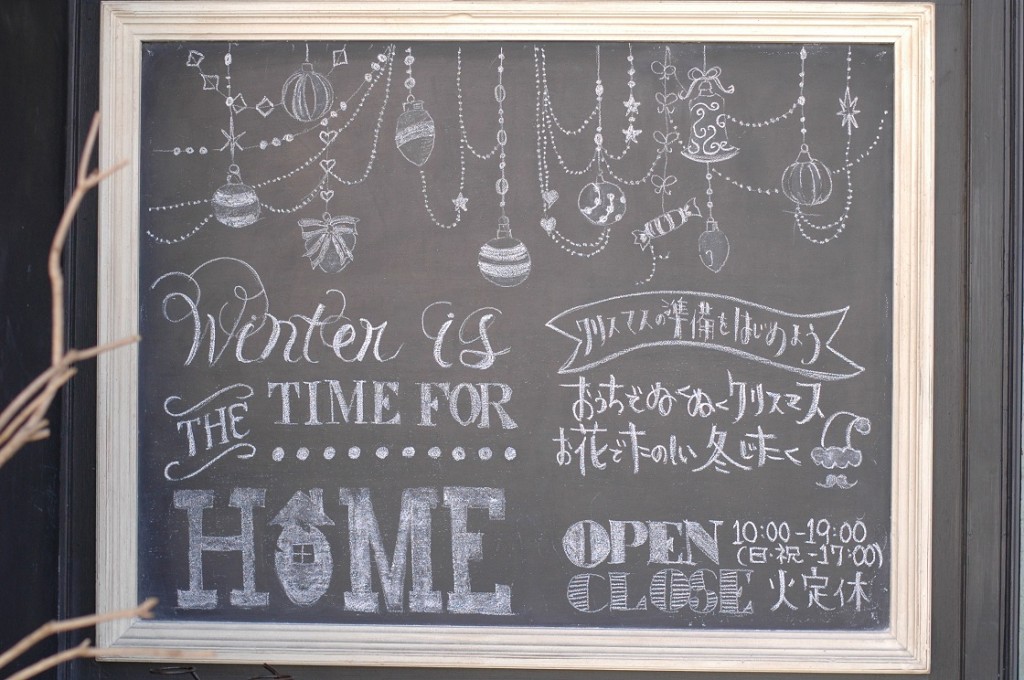 Winter is
THE TIME FOR
HOME
クリスマスの準備をはじめよう
おうちでぬくぬくクリスマス
お花でたのしい冬じたく
OPEN 10:00-19:00
(日・祝 -17:00)
CLOSE 火定休